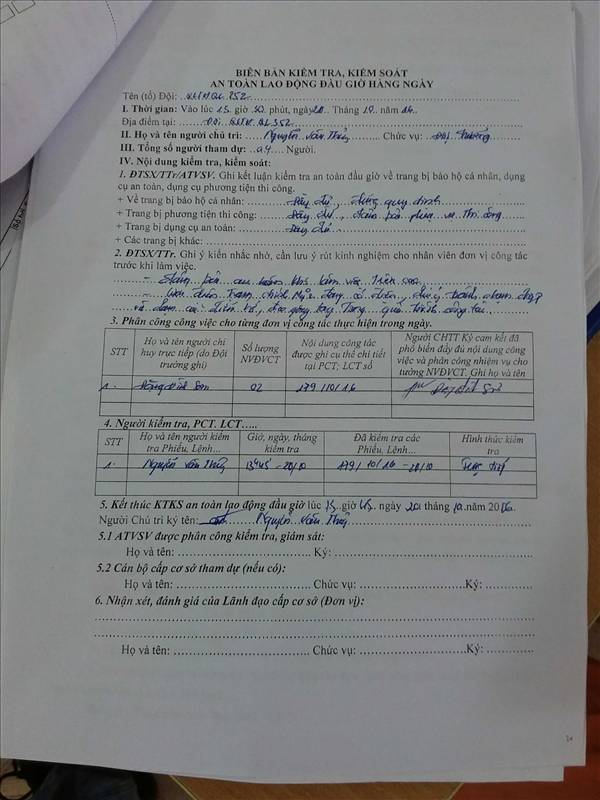 BIÊN BẢN KIỂM TRA, KIỂM SOÁT
AN TOÀN LAO ĐỘNG ĐẦU GIỜ HÀNG NGÀY
Tên (tổ) Đội:
I. Thời gian: Vào lúc 13 giờ 30 phút, ngày 20 Tháng 10 năm 16
Địa điểm tại:
II. Họ và tên người chủ trì: Nguyễn Văn Thủy Chức vụ: Đội trưởng
III. Tổng số người tham dự: 04 Người.
IV. Nội dung kiểm tra, kiểm soát:
1. ĐTSX/TTr/ATVSV. Ghi kết luận kiểm tra an toàn đầu giờ về trang bị bảo hộ cá nhân, dụng
cụ an toàn, dụng cụ phương tiện thi công.
+ Về trang bị bảo hộ cá nhân: Đầy đủ, đúng quy định
+ Trang bị phương tiện thi công: Đầy đủ, đảm bảo phục vụ thi công
+ Trang bị dụng cụ an toàn: Đầy đủ
+ Các trang bị khác:
2. ĐTSX/TTr. Ghi ý kiến nhắc nhở, cần lưu ý rút kinh nghiệm cho nhân viên đơn vị công tác
trước khi làm việc.
- Đảm bảo an toàn khi làm việc trên cao
3. Phân công công việc cho từng đơn vị công tác thực hiện trong ngày.
STT Họ và tên người chỉ huy trực tiếp (do Đội trưởng ghi) Số lượng NVĐVCT Nội dung công tác được ghi cụ thể chi tiết tại PCT; LCT số Người CHTT Ký cam kết đã phổ biến đầy đủ nội dung công việc và phân công nhiệm vụ cho từng NVĐVCT. Ghi họ và tên
1. 02 179/10/16
4. Người kiểm tra, PCT. LCT.....
STT Họ và tên người kiểm tra Phiếu, Lệnh... Giờ, ngày, tháng kiểm tra Đã kiểm tra các Phiếu, Lệnh... Hình thức kiểm tra
1. Nguyễn Văn Thủy 13h45 - 20/10 179/10/16 - 20/10 Trực tiếp
5. Kết thúc KTKS an toàn lao động đầu giờ lúc 13 giờ 45 ngày 20 tháng 10 năm 2016
Người Chủ trì ký tên: Nguyễn Văn Thủy
5.1 ATVSV được phân công kiểm tra, giám sát:
Họ và tên: Ký:
5.2 Cán bộ cấp cơ sở tham dự (nếu có):
Họ và tên: Chức vụ: Ký:
6. Nhận xét, đánh giá của Lãnh đạo cấp cơ sở (Đơn vị):
Họ và tên: Chức vụ: Ký: